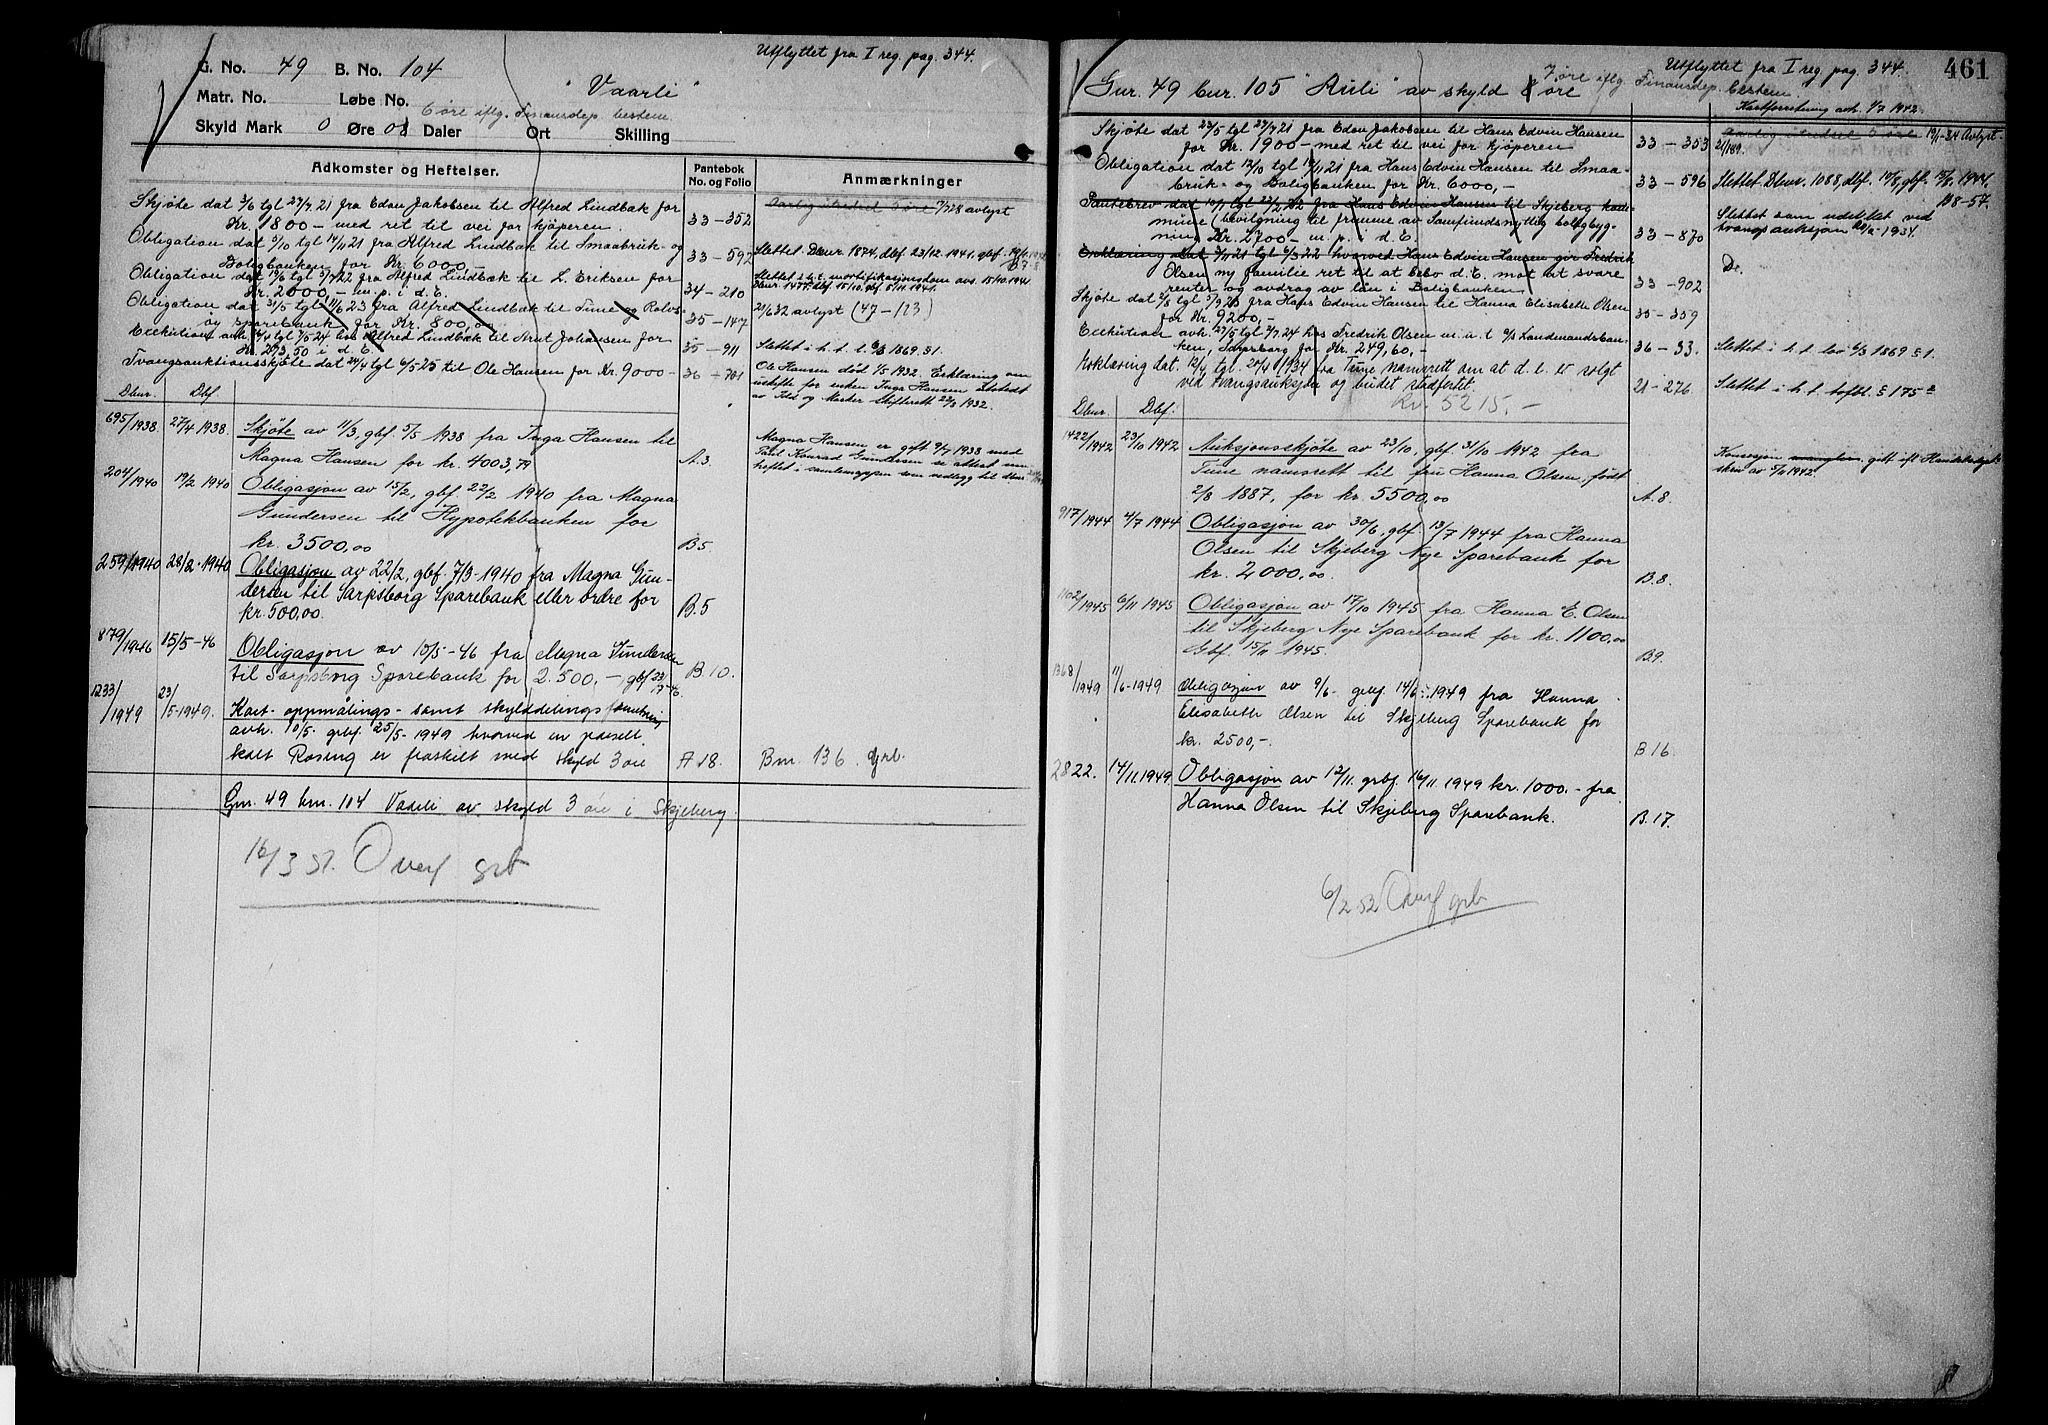 Utflyttet fra I reg. pag. 344.
G. No. 49 B. No. 104 "Vaarli"
Matr. No. Løbe No.
6 øre iflg. Finansdep. bestem.
Skyld Mark 0 Øre 08 Daler Ort Skilling
Adkomster og Heftelser.
Pantebok
No. og Folio
Anmærkninger
Skjøte dat 3/6 tgl 27/7 21 fra Edan Jakobsen til Alfred Lindbæk for
Kr. 1800 - med ret til vei for kjøperen.
33 - 352
avlyst
Obligation dat 5/10 tgl 14/11 21 fra Alfred Lindbæk til Smaabruk- og
Boligbanken for Kr. 6000,-
33 - 592
Slettet Dbnr 1874, dbf. 23/12 1941, gbf.
Obligation dat 19/6 tgl 5/7 22 fra Alfred Lindbæk til L. Eriksen for
Kr. 2000 - m. p. i d. E.
34 - 210
Slettet s.h.t. mortifikasjonsdom avs. 15/10 1941
Dbnr. 1477, dbf 15/10, gbf 5/11 1941.
Obligation dat 31/5 tgl 11/6 23 fra Alfred Lindbæk til Tune og Rolvs-
øy sparebank for Kr. 800,00
35 - 147
21/6 32 avlyst (47 - 123)
Execution avh. tgl 7/5-24 hos Alfred Lindbæk til Arnt Johansen for
Kr. 273,50 i d. E.
35 - 911
Slettet i h. t. l. 6/3 1869 § 1.
Tvangsauktionsskjøte dat 24/4 tgl 6/5 25 til Ole Hansen for Kr. 9000 -
36 - 701
Ole Hansen død 1/5 1932. Erklæring om
uskifte for enken Inga Hansen utstedt
av Idd og Marker Skifterett 22/8 1932.
Dbnr. Dbf.
695/1938 27/4 1938. Skjøte av 11/3, gbf. 5/5 1938 fra Inga Hansen til
Magna Hansen for kr. 4003,79
A.3.
Magna Hansen er gift 9/7 1938 med
Paul Konrad Gundersen se attest inn-
heftet i samlemappen som vedlegg til dbnr
204/1940 19/2 1940 Obligasjon av 15/2, gbf. 22/2 1940 fra Magna
Gundersen til Hypotekbanken for
kr. 3500,00
B5
259/1940 28/2-1940 Obligasjon av 22/2, gbf. 7/3-1940 fra Magna Gun-
dersen til Sarpsborg Sparebank eller ordre for
kr. 500,00.
B.5
879/1946 15/5-46 Obligasjon av 10/5-46 fra Magna Gundersen
til Sarpsborg Sparebank for 2.500,-, gbf 23/5-46.
B.10.
1233/1949 23/5-1949. Kart- oppmålings- samt skylddelingsforretning
avh. 10/5. grbf. 25/5-1949 hvorved en parsell
kalt Rosing er fraskilt med skyld 3 øre
A 18.
Bnr. 136. Grb.
Gnr. 49 bnr. 104 Vaarli av skyld 3 øre i Skjeberg
16/3 51. Overf grb
Utflyttet fra I reg. pag. 344. 461
Gnr. 49 bnr. 105 "Auli" av skyld 8 øre
7 øre iflg. Finansdep. bestem.
Kartforretning avh. 1/7 1942.
Skjøte dat 23/5 tgl 27/7 21 fra Edan Jakobsen til Hans Edvin Hansen
for Kr. 1900 - med ret til vei for kjøperen
33 - 353
Avlyst
Obligation dat 12/10 tgl 14/11 21 fra Hans Edvin Hansen til Smaa-
bruk- og Boligbanken for Kr. 6000,-
33 - 596
Slettet Dbnr. 1088, dbf. 14/8, gbf. 15/8. 1944.
B8-57.
Pantebrev dat 10/1 tgl 22/2 22 fra Hans Edvin Hansen til Skjeberg kom-
mune (bevilgning til fremme av Samfundsnyttig boligbyg-
ning Kr. 2700 - m. p. i d. E.
33 - 870
Slettet som udekket ved
tvangsauksjon 1934.
Erklæring dat 3/11 21 tgl 6/3 22 hvorved Hans Edvin Hansen gir Fredrik
Olsen m/ familie ret til at bebo d. E. mot at svare
renter og avdrag av lån i Boligbanken
33 - 902
Do.
Skjøte dat 2/8 tgl 3/9 23 fra Hans Edvin Hansen til Hanna Elisabeth Olsen
for Kr. 9200,-
35 - 359
Execution avh. 27/5 tgl 2/7 24 hos Fredrik Olsen m. u. t. A/S Landmandsban-
ken, Sarpsborg for Kr. 249,60,-
36 - 33.
Slettet i h. t. lov 6/3 1869 § 1.
Erklæring dat. 12/4 tgl. 20/4 1934 fra Tune namsrett om at d. e. er solgt
ved tvangsauksjon og budet stadfestet.
Kr. 5215,-
21 - 276
Slettet i h. t. tvfbl. § 175
Dbnr. Dbf.
1422/1942 23/10 1942 Auksjonsskjøte av 23/10. gbf. 31/10 1942 fra
Tune namsrett til fru Hanna Olsen, født
2/8 1887, for kr. 5500,00
A.8.
Konsesjon mangler. gitt
1942.
917/1944 4/7 1944 Obligasjon av 30/6. gbf 13/7 1944 fra Hanna
Olsen til Skjeberg Nye Sparebank for
kr. 2000,00.
B.8.
1102/1945 6/11 1945 Obligasjon av 17/10 1945 fra Hanna E. Olsen
til Skjeberg Nye Sparebank for kr. 1100,00
Gbf. 15/11 1945.
B9.
1368/1949 11/6-1949 Obligasjon av 9/6- grbf 14/6-1949 fra Hanna
Elisabeth Olsen til Skjeberg Sparebank for
kr. 2500,-.
B 16.
2822. 14/11.1949 Obligasjon av 12/11. grbf. 16/11 1949 kr. 1000.- fra
Hanna Olsen til Skjeberg Sparebank.
B.17.
6/2-52 Overf grb